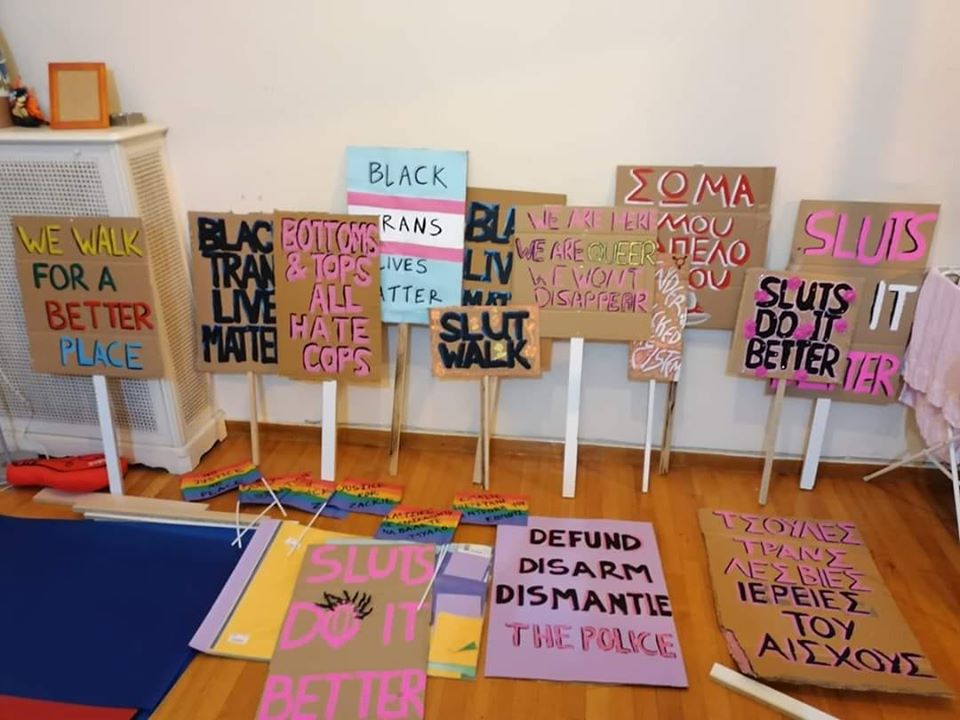 WE WALK
FOR A
BETTER
PLACE
BLAC
TRAN
LIVE
MATTE
BOTTOMS
& TOPS
ALL
HATE
COPS
BLACK
TRANS
LIVES
ATTER
BLA
LIV
MAT
SLUT
WALK
WE ARE HERE
WE ARE QUEER
WE WON'T
DISAPPEAR
ΣΩΜΑ
ΜΟΥ
SLUTS
DO IT
BETTER
SLUTS
IT
TER
JUSTICE
FOR
ZACKIE
SLUTS
DO IT
BETTER
DEFUND
DISARM
DISMANTLE
THE POLICE
ΤΣΟΥΛΕΣ
ΤΡΑΝΣ
ΛΕΣΒΙΕΣ
ΙΕΡΕΙΕΣ
ΤΟΥ
ΑΙΣΧΟΥΣ